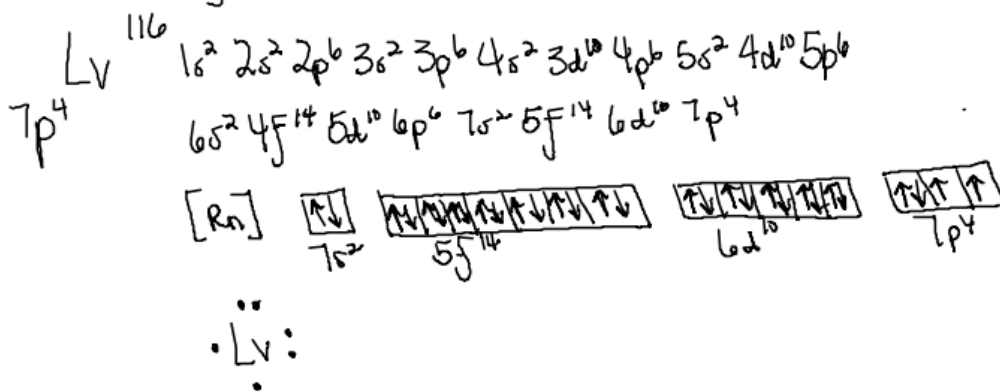 Lv 116 1s² 2s² 2p⁶ 3s² 3p⁶ 4s² 3d¹⁰ 4p⁶ 5s² 4d¹⁰ 5p⁶
7p⁴ 6s² 4f¹⁴ 5d¹⁰ 6p⁶ 7s² 5f¹⁴ 6d¹⁰ 7p⁴
[Rn] ↑↓ ↑↓ ↑↓ ↑↓ ↑↓ ↑↓ ↑↓ ↑↓ ↑↓ ↑↓ ↑↓ ↑↓ ↑↓ ↑↓ ↑ ↑
7s² 5f¹⁴ 6d¹⁰ 7p⁴
·Lv: